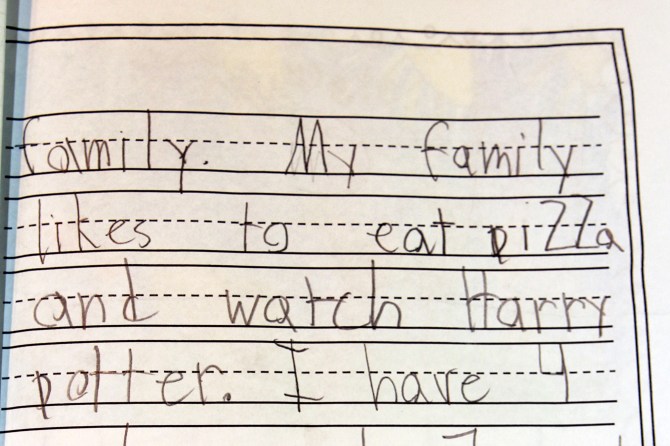 family. My family
likes to eat pizza
and watch Harry
potter. I have 4